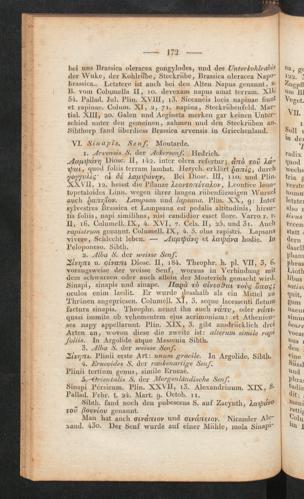 — 172 —
bei uns Brassica oleracea gongylodes, und des Unterkohlrabis
der Wuke, der Kohlrübe, Steckrübe, Brassica oleracea Napo-
brassica. Letztere ist auch bei den Alten Napus genannt, z.
B. vom Columella II, 10. devexam napus amat terram. XII,
54. Pallad. Jul. Plin XVIII, 13. Siccaneis locis napinae fiunt
et rapinae. Colum. XI, 2, 71. napina, Steckrübenfeld. Mar-
tial XIII, 20. Galen und Aegineta merken gar keinen Unter-
schied unter den gemeinen, zahmen und den Steckrüben an.
Sibthorp fand überdiess Brassica arvensis in Griechenland.
VI. Sinapis. Senf. Moutarde.
1. Arvensis S. der Ackersenf. Hedrich.
Λαμψάνη Diosc. II, 142. inter olera refertur, ἀπὸ τοῦ λά-
ψαι, quod foliis terram lambat. Hesych. erklärt
Bei Diosc. III, und Plin
XXVII, 12. heisst die Pflanze Leontopetalon, Leontice leon-
topetaloides Linn. wegen ihrer langen rübenförmigen Wurzel
auch Lampana und lapsana. Plin XX, 9: Inter
sylvestres Brassica et Lampsana est pedalis altitudinis, hirsu-
tis foliis, napi similibus, nisi candidior esset flore. Varro r. r.
II, 16. Columell IX, 4. XVI, 7. Cels. II, 23, und 31. Auch
rapistrum genant. Columell. IX, 4, 5. olus rapistri. Lapsana
vivere, Schlecht leben. — Λαμψάνη et λαψάνα hodie. In
Peloponeso. Sibth.
2. Alba S. der weisse Senf.
Σίνηπι o. σίναπι Diosc II, 184. Theophr. h. pl. VII, 3, 6.
vorzugsweise der weisse Senf, woraus in Verbindung mit
dem schwarzen oder auch allein der Mostrich gemacht wird.
Sinapi, sinapis und sinape. Παρὰ τὸ σίνεσθαι τοὺς ὦπας;
oculos enim laedit. Er wurde desshalb als ein Mittel zu
Thränen angepriesen. Columell. XI, 3. seque lacessenti fletum
factura sinapis. Theophr. nennt ihn auch νάπυ, oder
quasi inmite ob vehementem ejus acrimoniam: et Athenien-
ses napy appellarunt. Plin. XIX, 3. gibt ausdrücklich drei
Arten an, wovon diese die zweite ist: alterum simile rapo
foliis. In Argolide atque Messenia Sibth.
3. Alba S. der weisse Senf.
Σίνηπι. Plinii erste Art: unum gracile. In Argolide, Sibth.
4. Erucoides S. der raukenartige Senf.
Plinii tertium genus, simile Erucae.
5. Orientalis S. der Morgenländische Senf.
Sinapi Persicum. Plin. XXVII, 13. Alexandrinum. XIX, 8.
Pallad. Febr. t. 24. Mart. 9. Octob. 11.
Sibth. fand noch den pubescens S. auf Zacynth, λαψάνα
τοῦ βουνίου genannt.
Man hat auch σινάπιον und Nicander Ale-
430. Der Senf wurde auf einer Mühle, mola Sinapi-